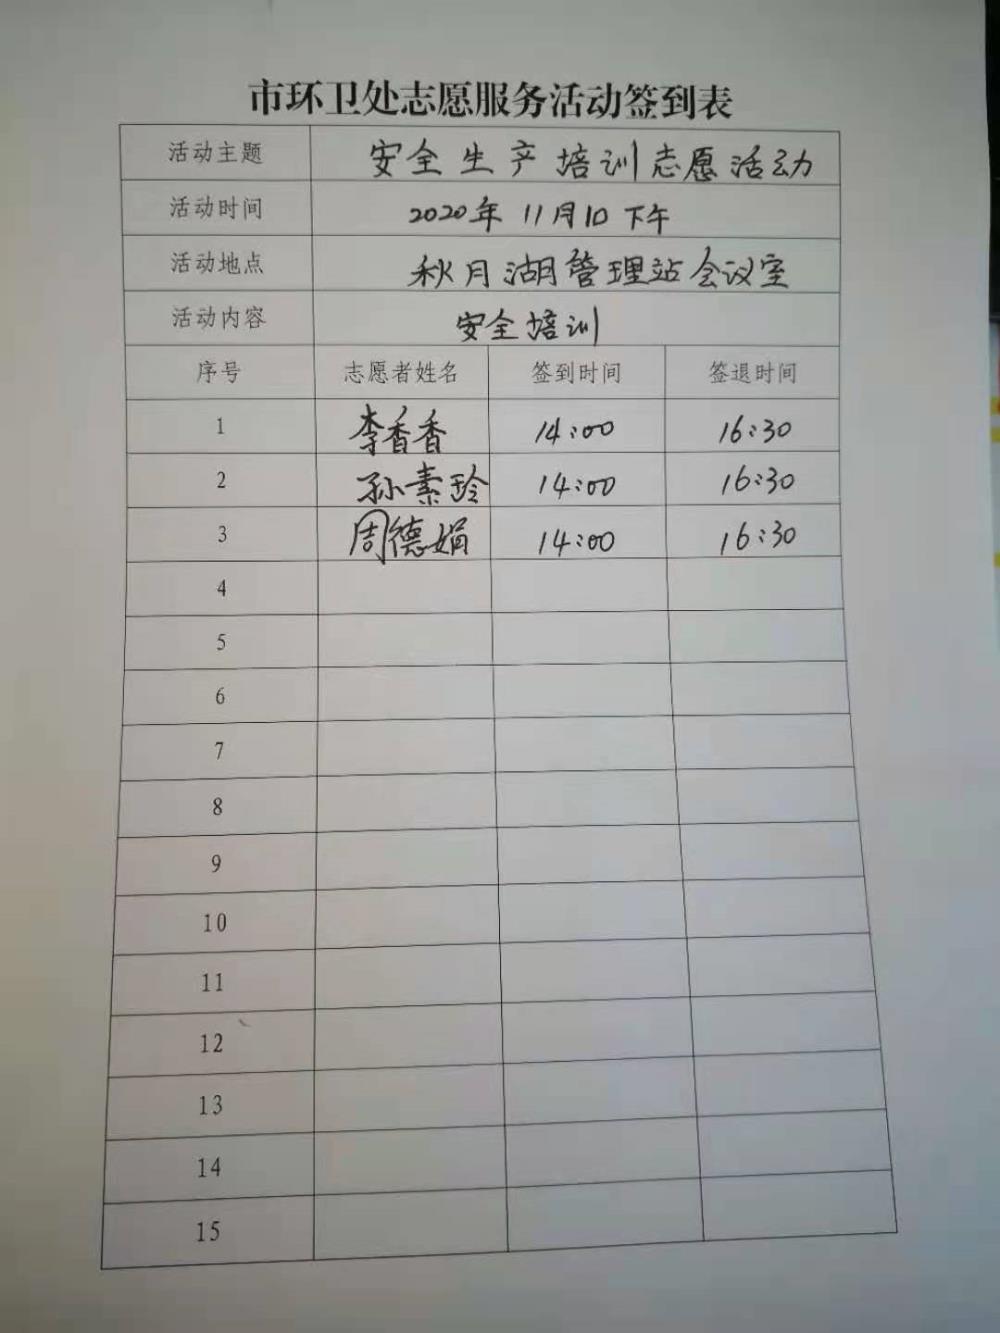 市环卫处志愿服务活动签到表
活动主题 安全生产培训志愿活动
活动时间 2020年11月10下午
活动地点 秋月湖管理站会议室
活动内容 安全培训
序号 志愿者姓名 签到时间 签退时间
1 李香香 14:00 16:30
2 孙素玲 14:00 16:30
3 周德娟 14:00 16:30
4
5
6
7
8
9
10
11
12
13
14
15